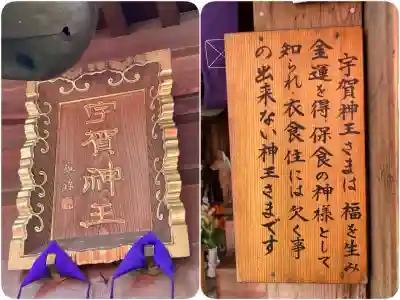 宇賀神王
宇賀神王さまは 福を生み
金運を得 保食の神様として
知られ 衣食住には欠く事
の出来ない神王さまです